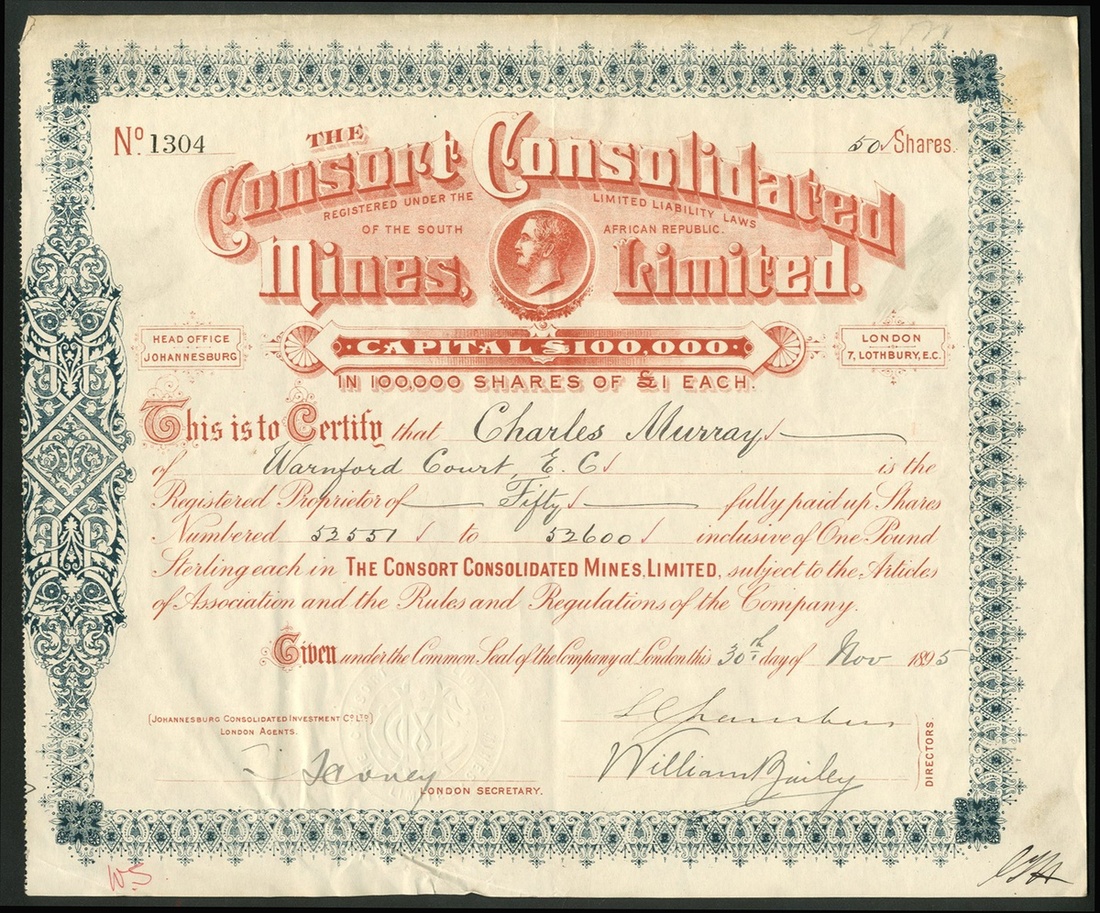 Nº 1304
50 Shares.
THE
Consort Consolidated
REGISTERED UNDER THE LIMITED LIABILITY LAWS
OF THE SOUTH AFRICAN REPUBLIC.
Mines, Limited.
HEAD OFFICE
JOHANNESBURG
CAPITAL £100,000
LONDON
7, LOTHBURY, E.C.
IN 100,000 SHARES OF £1 EACH.
This is to Certify that Charles Murray
of Warnford Court, E.C. is the
Registered Proprietor of Fifty fully paid up Shares
Numbered 52551 to 52600 inclusive of One Pound
Sterling each in THE CONSORT CONSOLIDATED MINES, LIMITED, subject to the Articles
of Association and the Rules and Regulations of the Company.
Given under the Common Seal of the Company at London this 30th day of Nov 1895
(JOHANNESBURG CONSOLIDATED INVESTMENT CO. LTD)
LONDON AGENTS.
S Chambers
William Bailey
DIRECTORS.
LONDON SECRETARY.
W.S